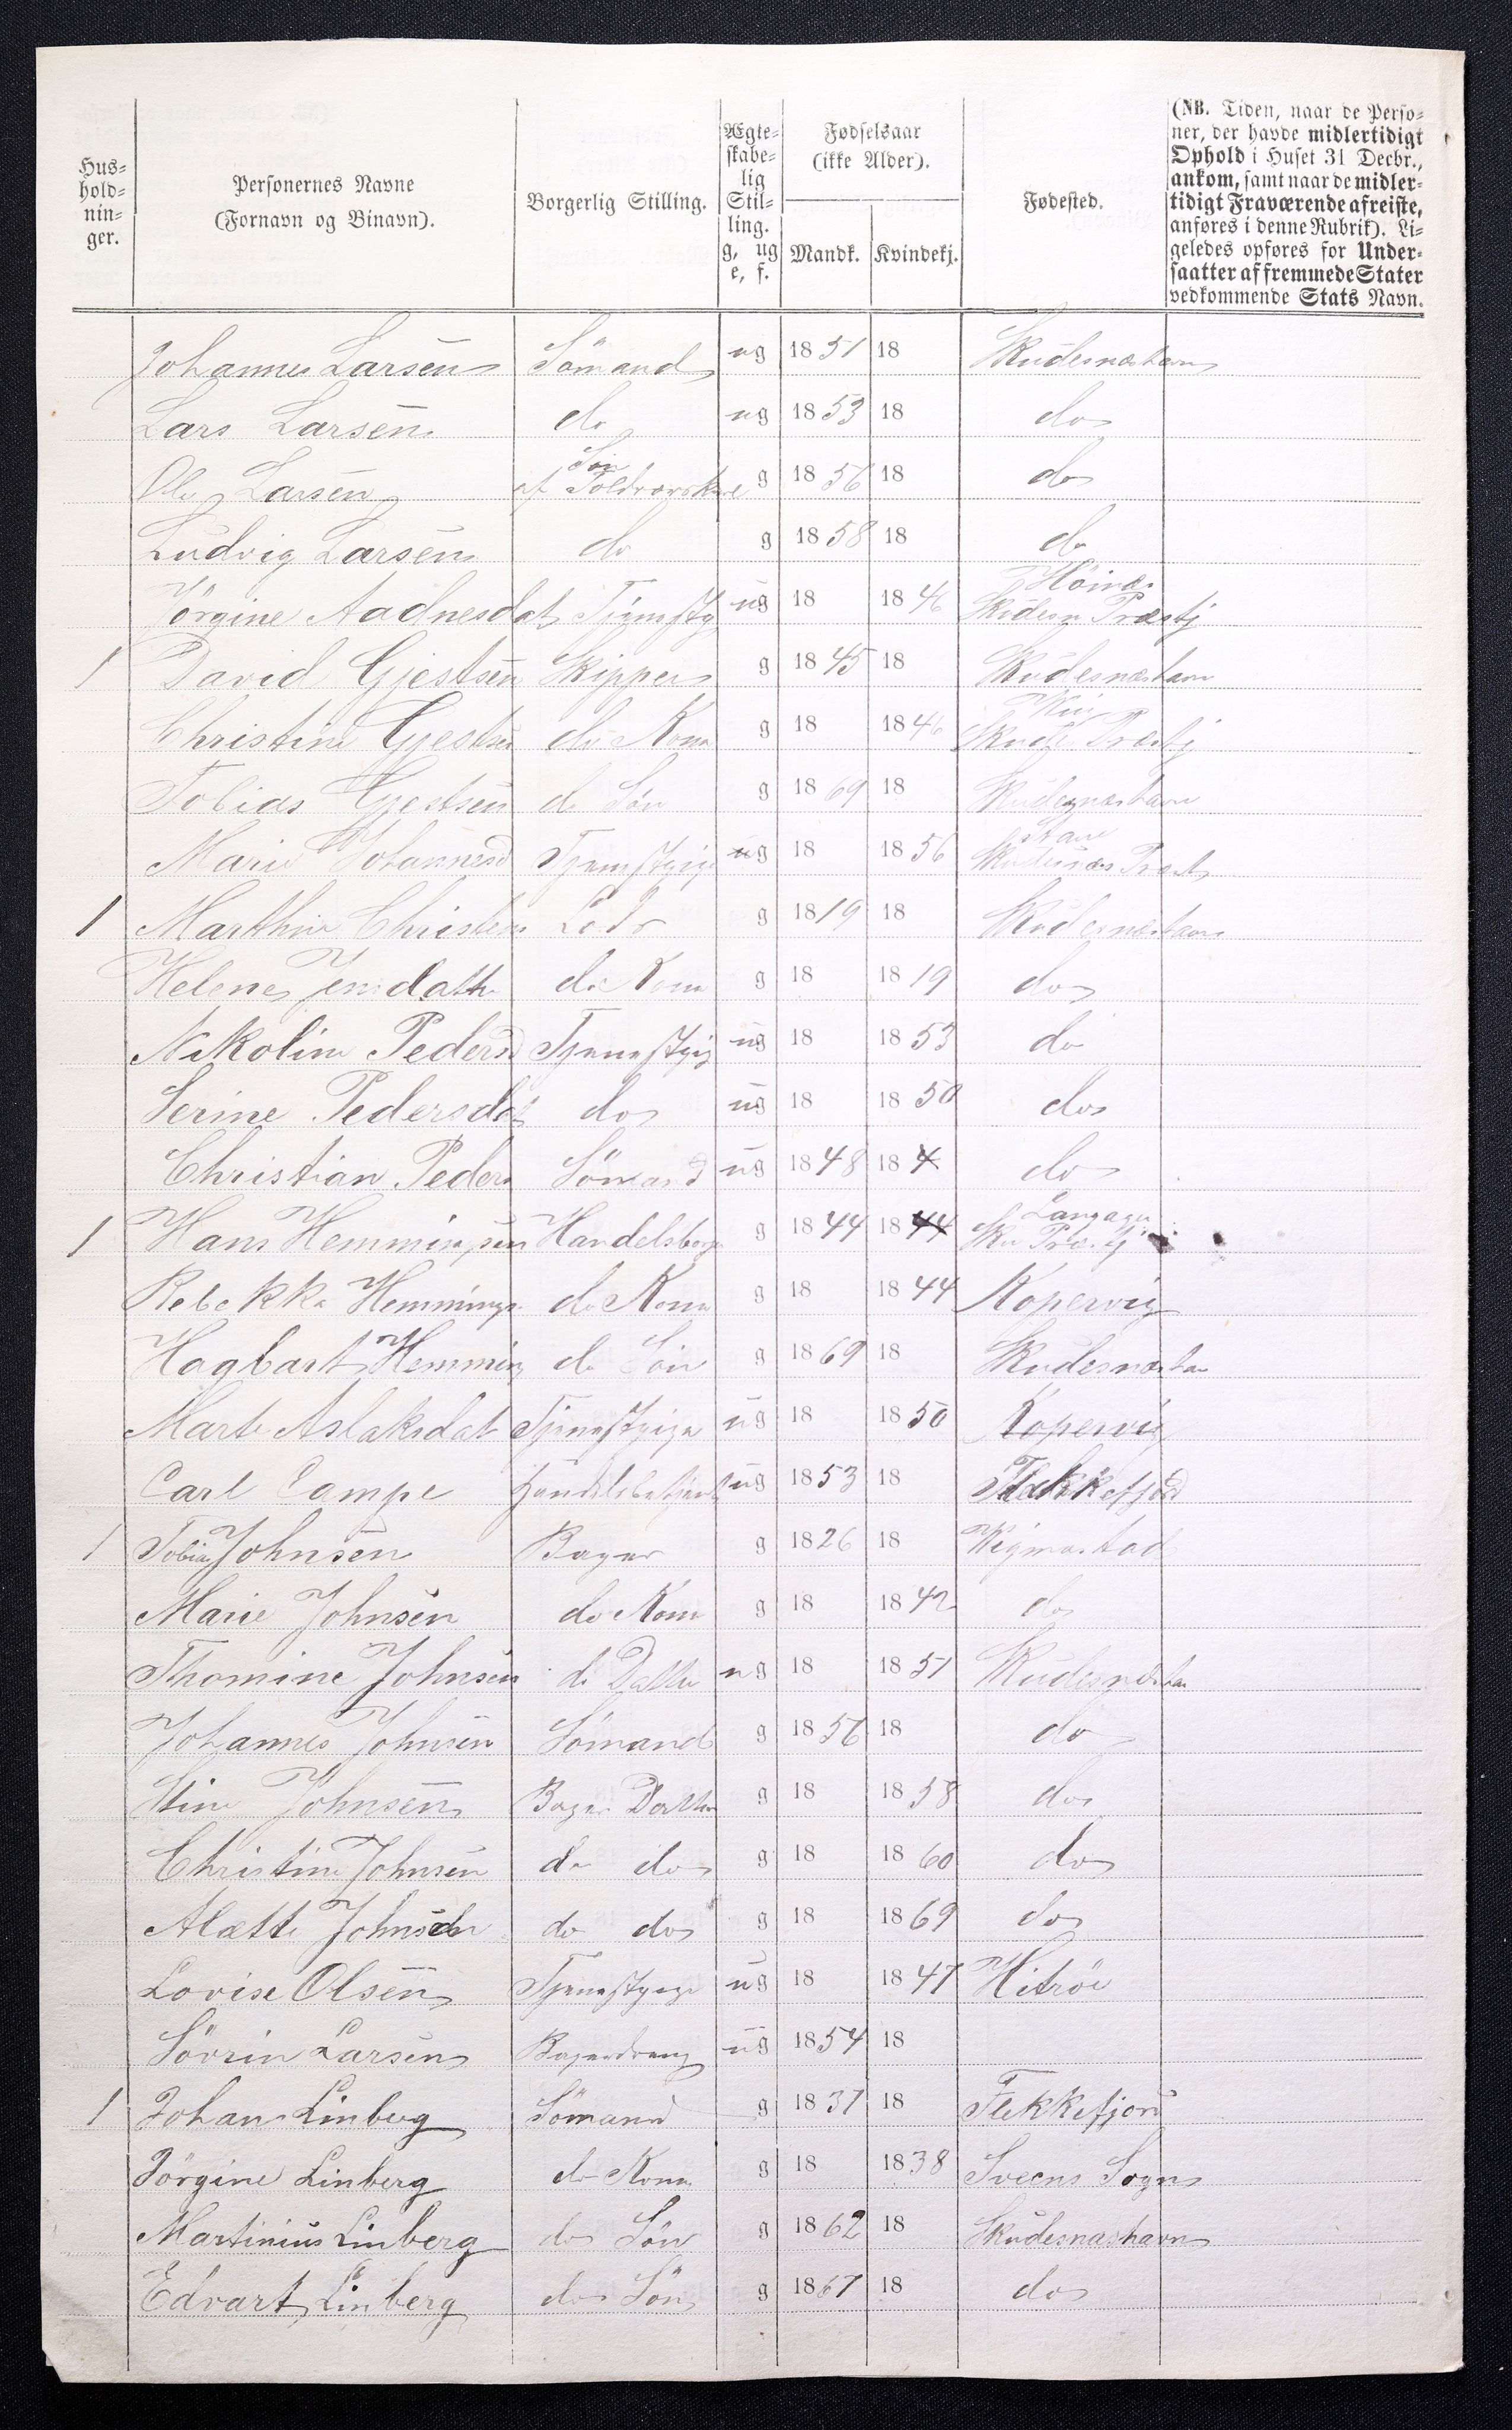 Hus-
hold-
nin-
ger.
Personernes Navne
(Fornavn og Binavn).
Borgerlig Stilling.
Ægte-
skabe-
lig
Stil-
ling.
g, ug
e, f.
Fødselsaar
(ikke Alder).
Mandk. Kvindekj.
Fødested.
(NB. Tiden, naar de Perso-
ner, der havde midlertidigt
Ophold i Huset 31 Decbr.,
ankom, samt naar de midler-
tidigt Fraværende afreiste,
anføres i denne Rubrik). Li-
geledes opføres for Under-
saatter af fremmede Stater
vedkommende Stats Navn.
Johannes Larsen Sömand ug 1851 18 Skudesnæshavn
Lars Larsen do ug 1853 18 do
Ole Larsen Sön af g 1856 18 do
Ludvig Larsen do g 1858 18 do
Jörgine Aadnesdat ug 18 1846 Skudesn Præstj
1 David Gjestsen Skipper g 1845 18 Skudesnæshavn
Christine Gjestsen do Kone g 18 1846 Skude Præstj
Tobias Gjestsen do Sön g 1869 18 Skudesnæshavn
Marie Johannesd Tjenestpige ug 18 1856 Skudesnæs Præst
1 Marthin Christens Lods g 1819 18 Skudesnæshavn
Helene Jensdatte do Kone g 18 1819 do
Nikoline Pedersd Tjenestpig ug 18 1853 do
Serine Pedersdat do ug 18 1850 do
Christian Peders Sömand ug 1848 18 do
1 Hans Hemmingsen Handelsborg g 1844 1844 Langager Sku Præstj
Rebekka Hemmings do Kone g 18 1844 Kopervig
Hagbart Hemming do Sön g 1869 18 Skudesnæshav
Marte Aslaksdat Tjenestpige ug 18 1850 Kopervig
Carl Campe Handelsbetjent ug 1853 18 Flekkefjord
1 Tobias Johnsen Bager g 1826 18 Vigmostad
Marie Johnsen do Kone g 18 1842 do
Thomine Johnsen do Datter ug 18 1851 Skudesnæshav
Johannes Johnsen Sömand g 1856 18 do
Stine Johnsen Bager Datter g 18 1858 do
Christine Johnsen do do g 18 1860 do
Alætte Johnsen do do g 18 1869 do
Lovise Olsen Tjenestpige ug 18 1847 Hitröe
Sövrin Larsen Bagerdreng ug 1854 18
1 Johan Linberg Sömand g 1837 18 Flekkefjord
Jörgine Linberg do Kone g 18 1838 Sveens Sogn
Martinius Linberg do Sön g 1862 18 Skudesnæshavn
Edvart Linberg do Sön g 1867 18 do